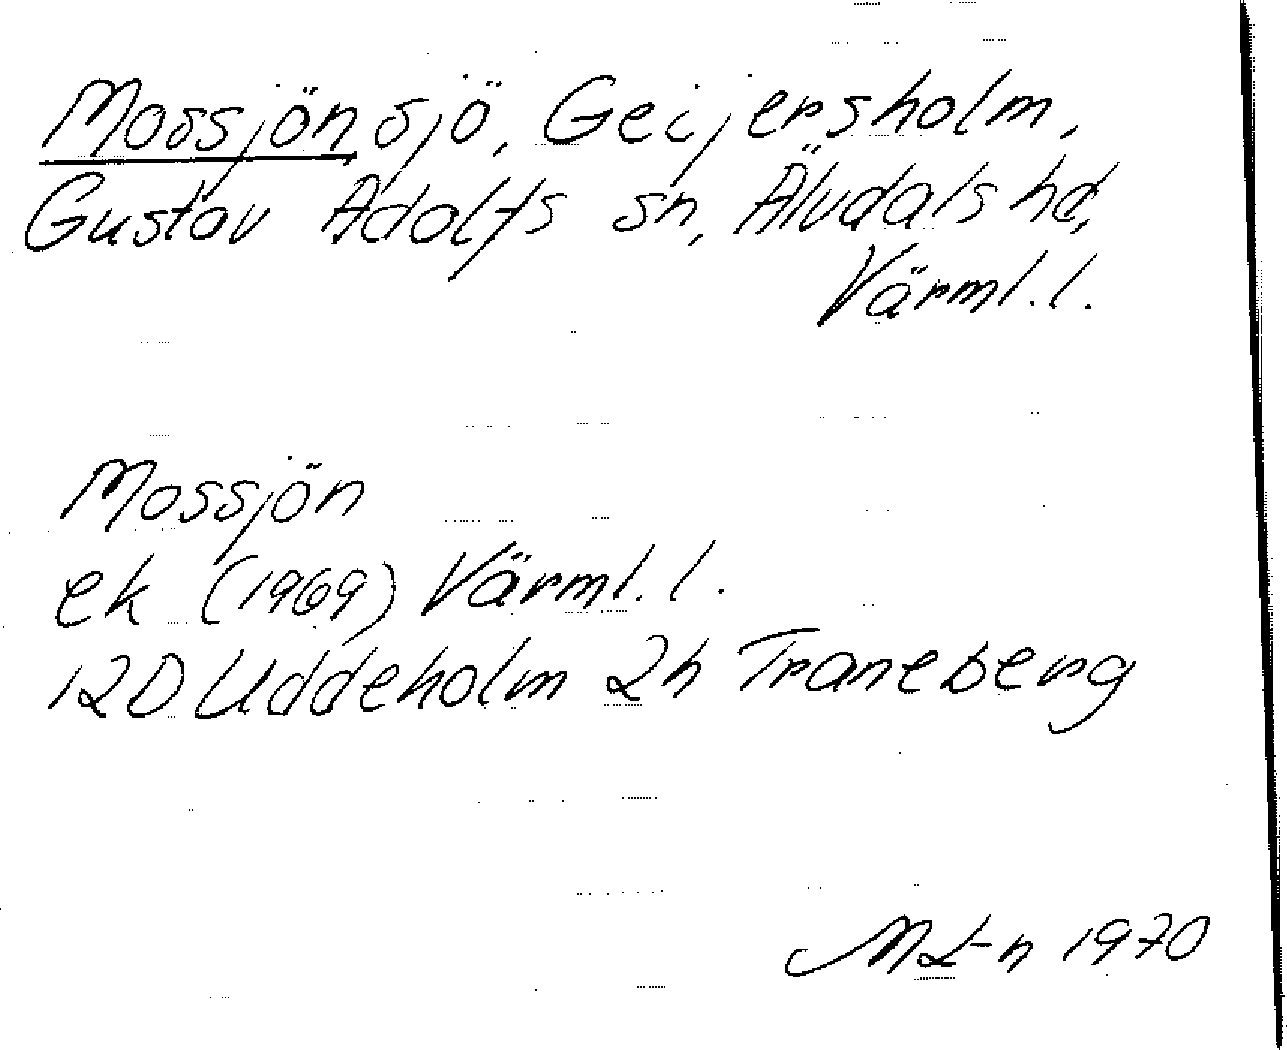 Mossjön sjö, Geijersholm,
Gustav Adolfs sn, Älvdals hd,
Värml. l.
Mossjön
ek (1969) Värml. l.
12D Uddeholm 2h Traneberg
ML-n 1970